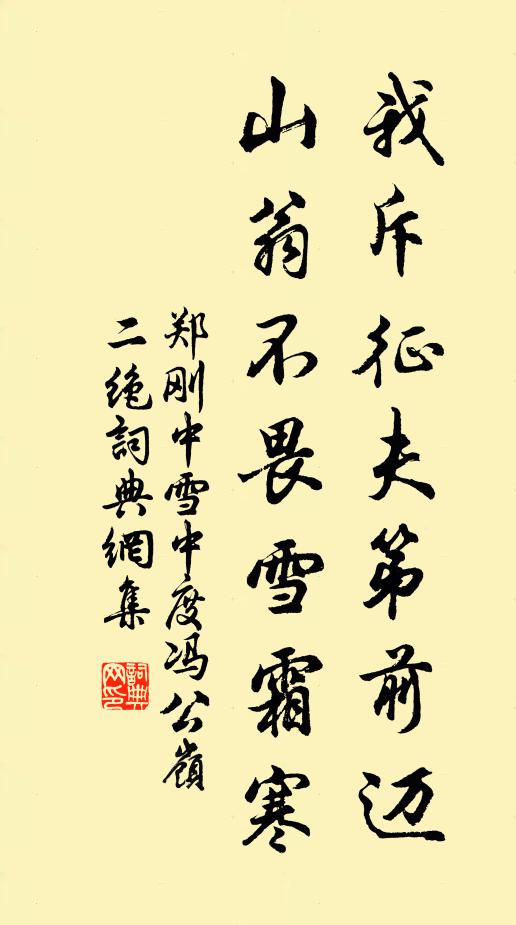 我斥征夫第前迈
山翁不畏雪霜寒
郑刚中雪中度冯公嶺
二绝詞典網集
詞典網印